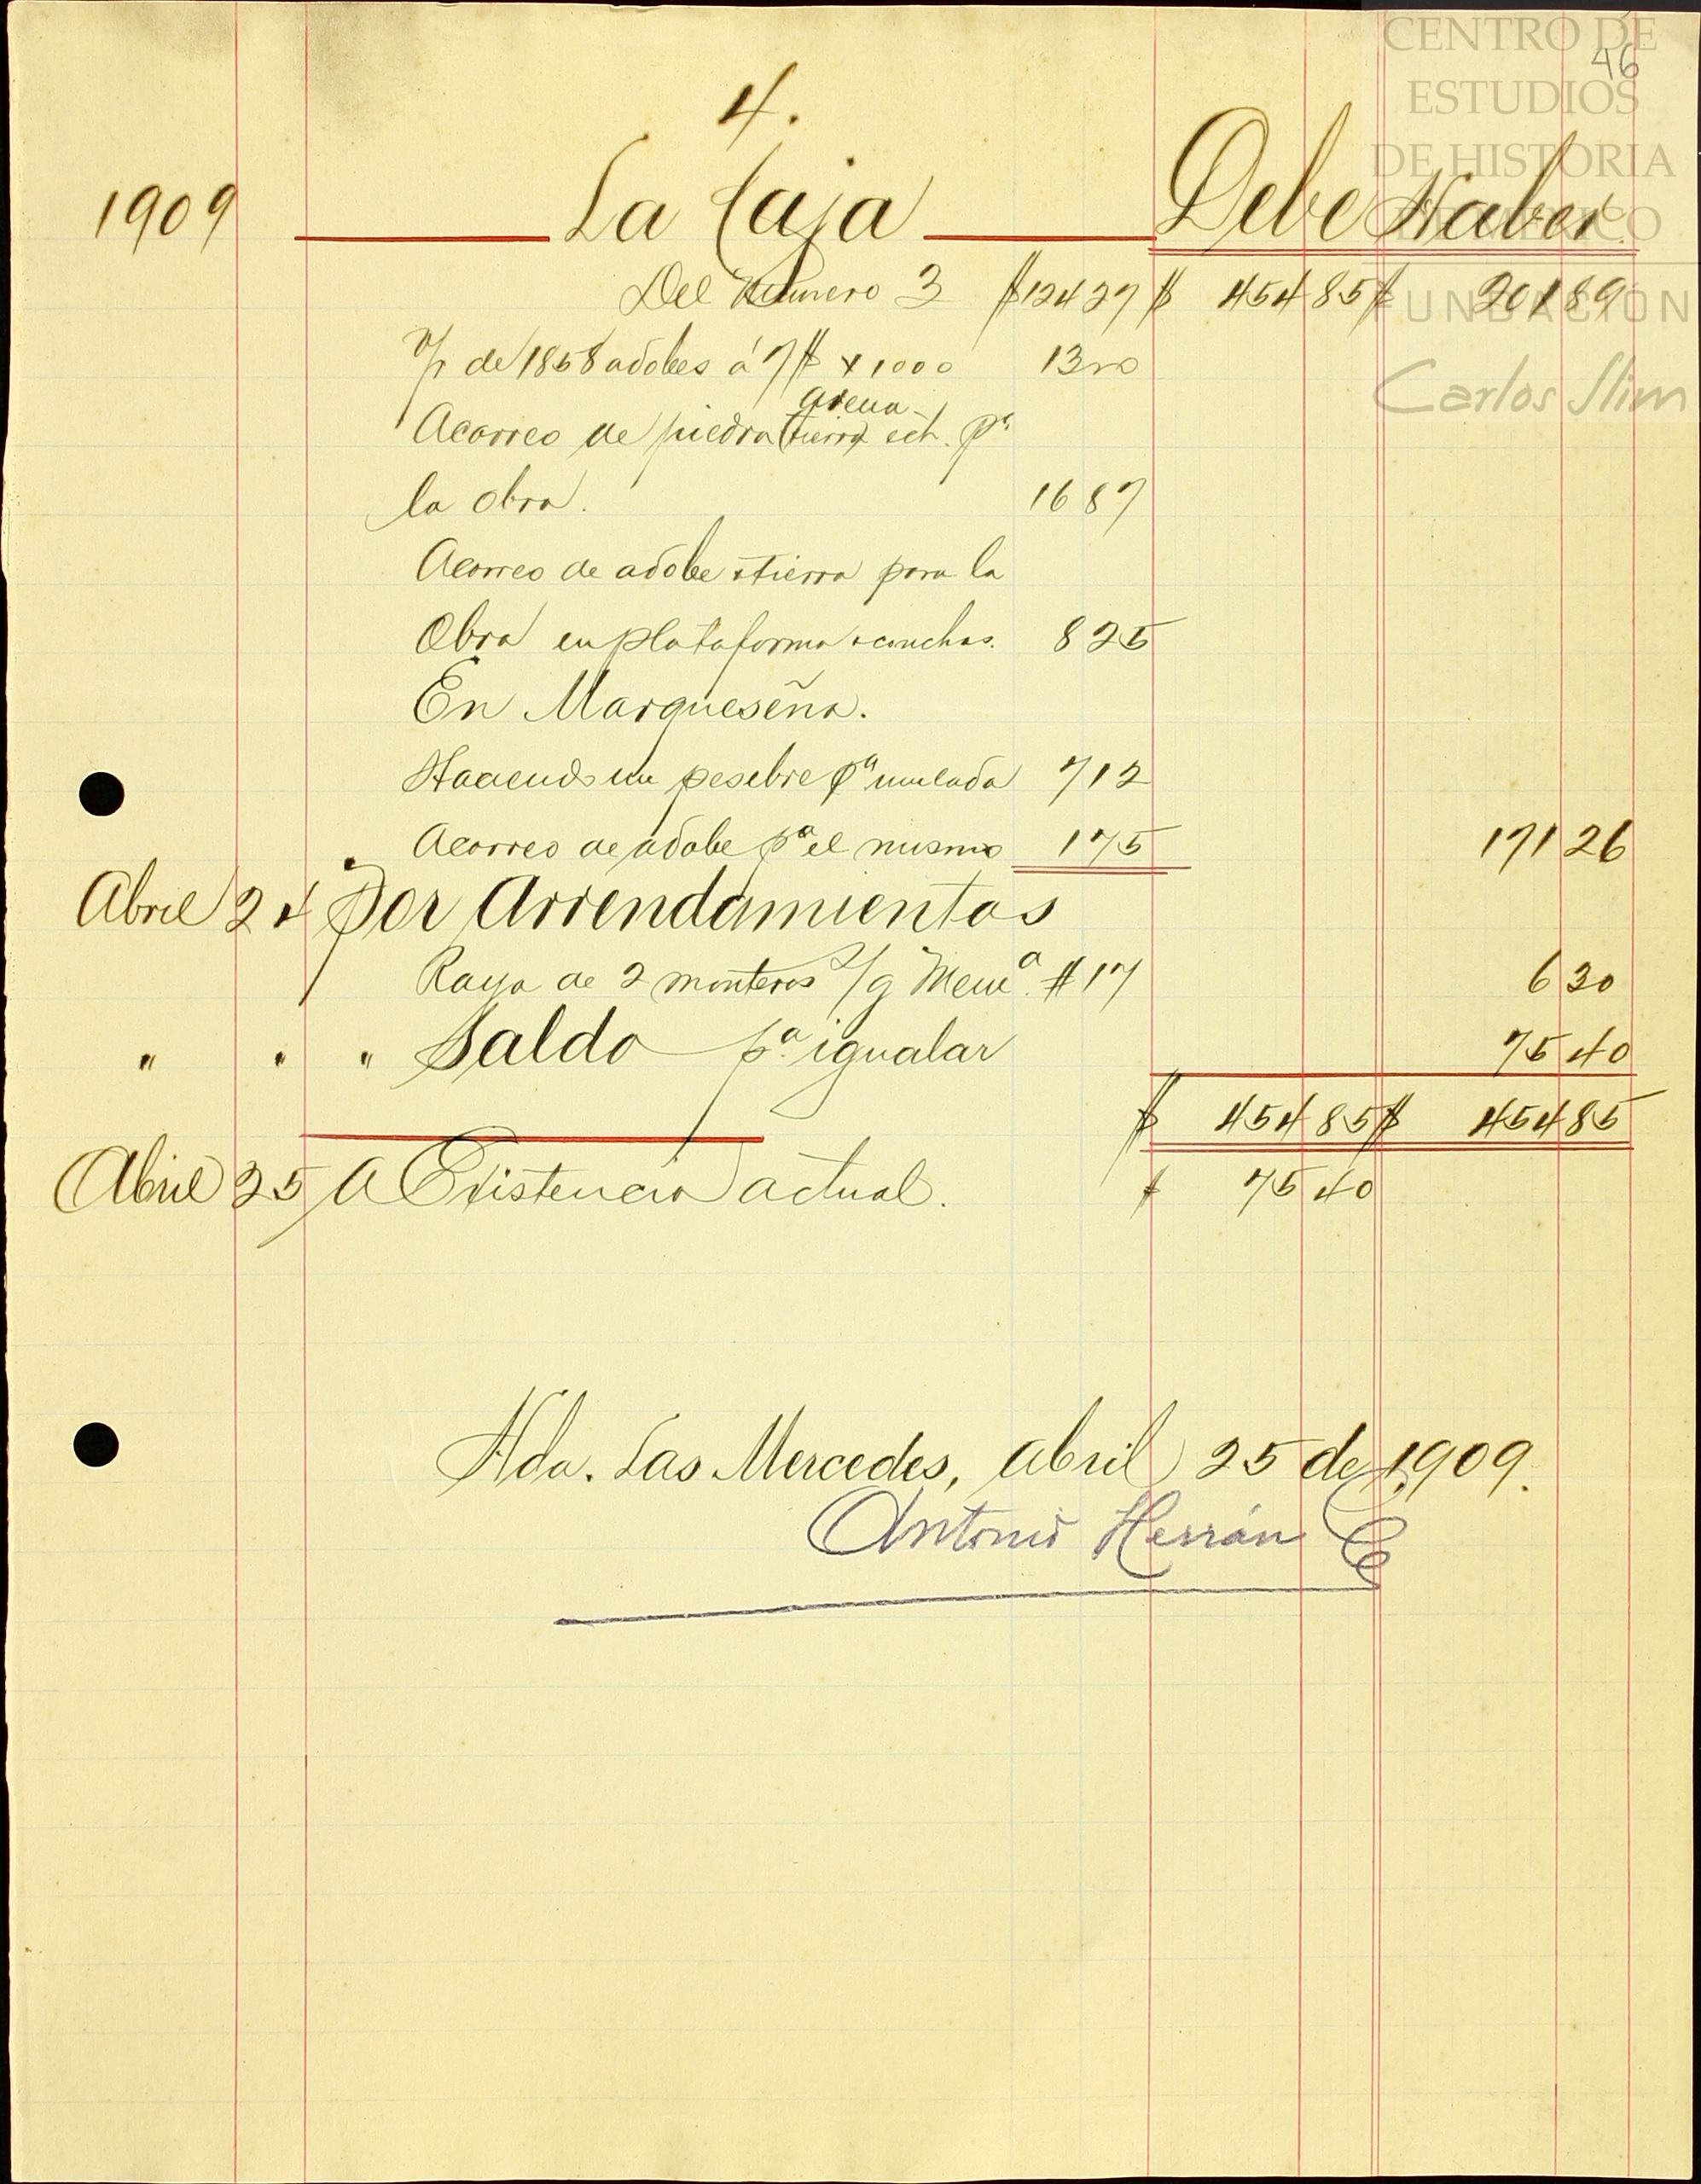 46
4.
1909 La Caja Debe Haber
Del Número 3 $124 27 $ 454 85 $ 201 89
de 1858 adobes á 7$ x 1000 13 00
arena
Acarreo de piedra (tierra) ect. pª
la obra. 16 87
Acarreo de adobe tierra para la
Obra en plataforma conchas. 8 25
En Marqueseña.
Haciendo un pesebre pª mulada 7 12
Acarreo de adobe pª el mismo 1 75 171 26
Abril 24 Por Arrendamientos
Raya de 2 monteros # 17 6 30
" " " Saldo pª igualar 75 40
$ 454 85 $ 454 85
Abril 25 A Existencia actual. $ 75 40
Hda. Las Mercedes, abril 25 de 1909.
Antonio Herrán E
CENTRO DE
ESTUDIOS
DE HISTORIA
DE MÉXICO
FUNDACIÓN
Carlos Slim